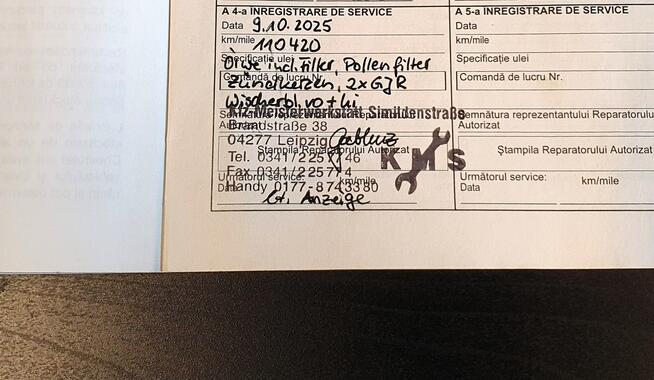 A 4-a INREGISTRARE DE SERVICE
Data 9.10.2025
km/mile 110420
Specificație ulei
Ölwe incl. Filter, Pollenfilter
Comandă de lucru Nr.
Zündkerzen, 2x GJR
Wischerbl. vo + hi
Semnătura reprezentantului Reparatorului
Autorizat
Kfz-Meisterwerkstatt Simildenstraße
Brandstraße 38
04277 Leipzig
Ștampila Reparatorului Autorizat
Tel. 0341/22 57 46
Fax 0341/22 57
Handy 0177-8743380
KMS
Următorul service:
Data km/mile
lt. Anzeige
A 5-a INREGISTRARE DE SERVICE
Data
km/mile
Specificație ulei
Comandă de lucru Nr.
Semnătura reprezentantului Reparatorului
Autorizat
Ștampila Reparatorului Autorizat
Următorul service:
Data km/mile